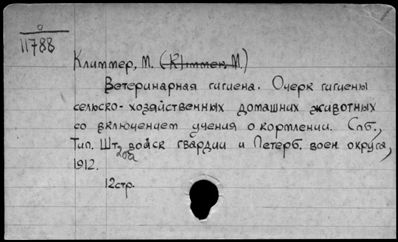 0
11788
Климмер, М. (К)иммер, М.)
Ветеринарная гигиена. Очерк гигиены
сельско-хозяйственных домашних животных
со включением учения о кормлении. Спб.,
Тип. Штаба войск гвардии и Петерб. воен. округа,
1912.
12стр.